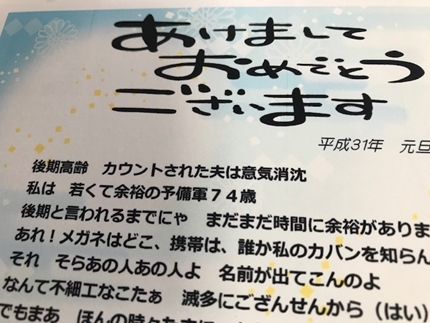 あけまして
おめでとう
ございます
平成31年　元旦
後期高齢　カウントされた夫は意気消沈
私は　若くて余裕の予備軍７４歳
後期と言われるまでにゃ　まだまだ時間に余裕がありま
あれ！メガネはどこ、携帯は、誰か私のカバンを知らん
それ　そらあの人あの人よ　名前が出てこんのよ
なんて不細工なこたぁ　滅多にござんせんから（はい）
でもまあ　ほんの時々